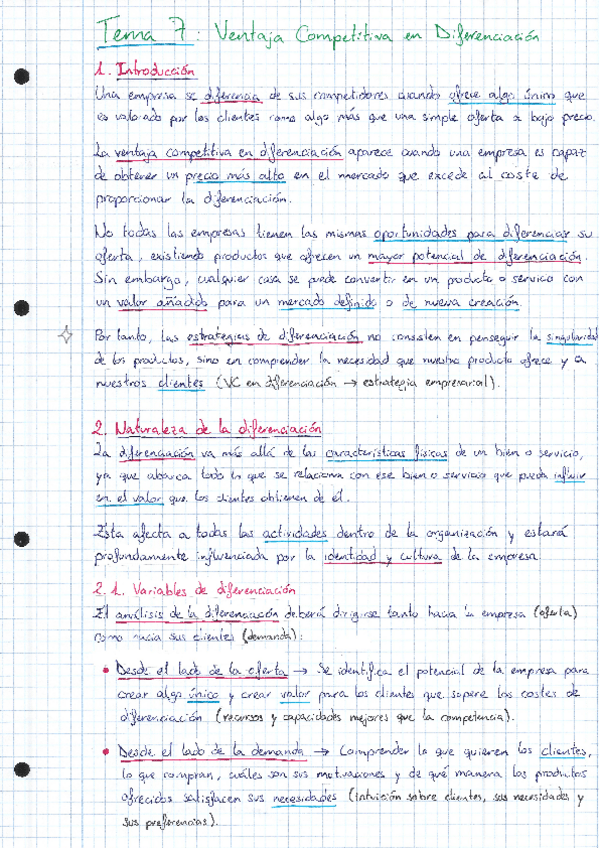 Tema 7: Ventaja Competitiva en Diferenciación
1. Introducción
Una empresa se diferencia de sus competidores cuando ofrece algo único que
es valorado por los clientes como algo más que una simple oferta a bajo precio.
La ventaja competitiva en diferenciación aparece cuando una empresa es capaz
de obtener un precio más alto en el mercado que excede al coste de
proporcionar la diferenciación.
No todas las empresas tienen las mismas oportunidades para diferenciar su
oferta, existiendo productos que ofrecen un mayor potencial de diferenciación.
Sin embargo, cualquier cosa se puede convertir en un producto o servicio con
un valor añadido para un mercado definido o de nueva creación.
Por tanto, las estrategias de diferenciación no consisten en perseguir la singularidad
de los productos, sino en comprender la necesidad que nuestro producto ofrece y a
nuestros clientes (VC en diferenciación → estrategia empresarial).
2. Naturaleza de la diferenciación
La diferenciación va más allá de las características físicas de un bien o servicio,
ya que abarca todo lo que se relaciona con ese bien o servicio que pueda influir
en el valor que los clientes obtienen de él.
Esta afecta a todas las actividades dentro de la organización y estará
profundamente influenciada por la identidad y cultura de la empresa
2.1. Variables de diferenciación
El análisis de la diferenciación debería dirigirse tanto hacia la empresa (oferta)
como hacia sus clientes (demanda):
• Desde el lado de la oferta → Se identifica el potencial de la empresa para
crear algo único y crear valor para los clientes que supere los costes de
diferenciación (recursos y capacidades mejores que la competencia).
• Desde el lado de la demanda → Comprender lo que quieren los clientes,
lo que compran, cuáles son sus motivaciones y de qué manera los productos
ofrecidos satisfacen sus necesidades (Intuición sobre clientes, sus necesidades y
sus preferencias).